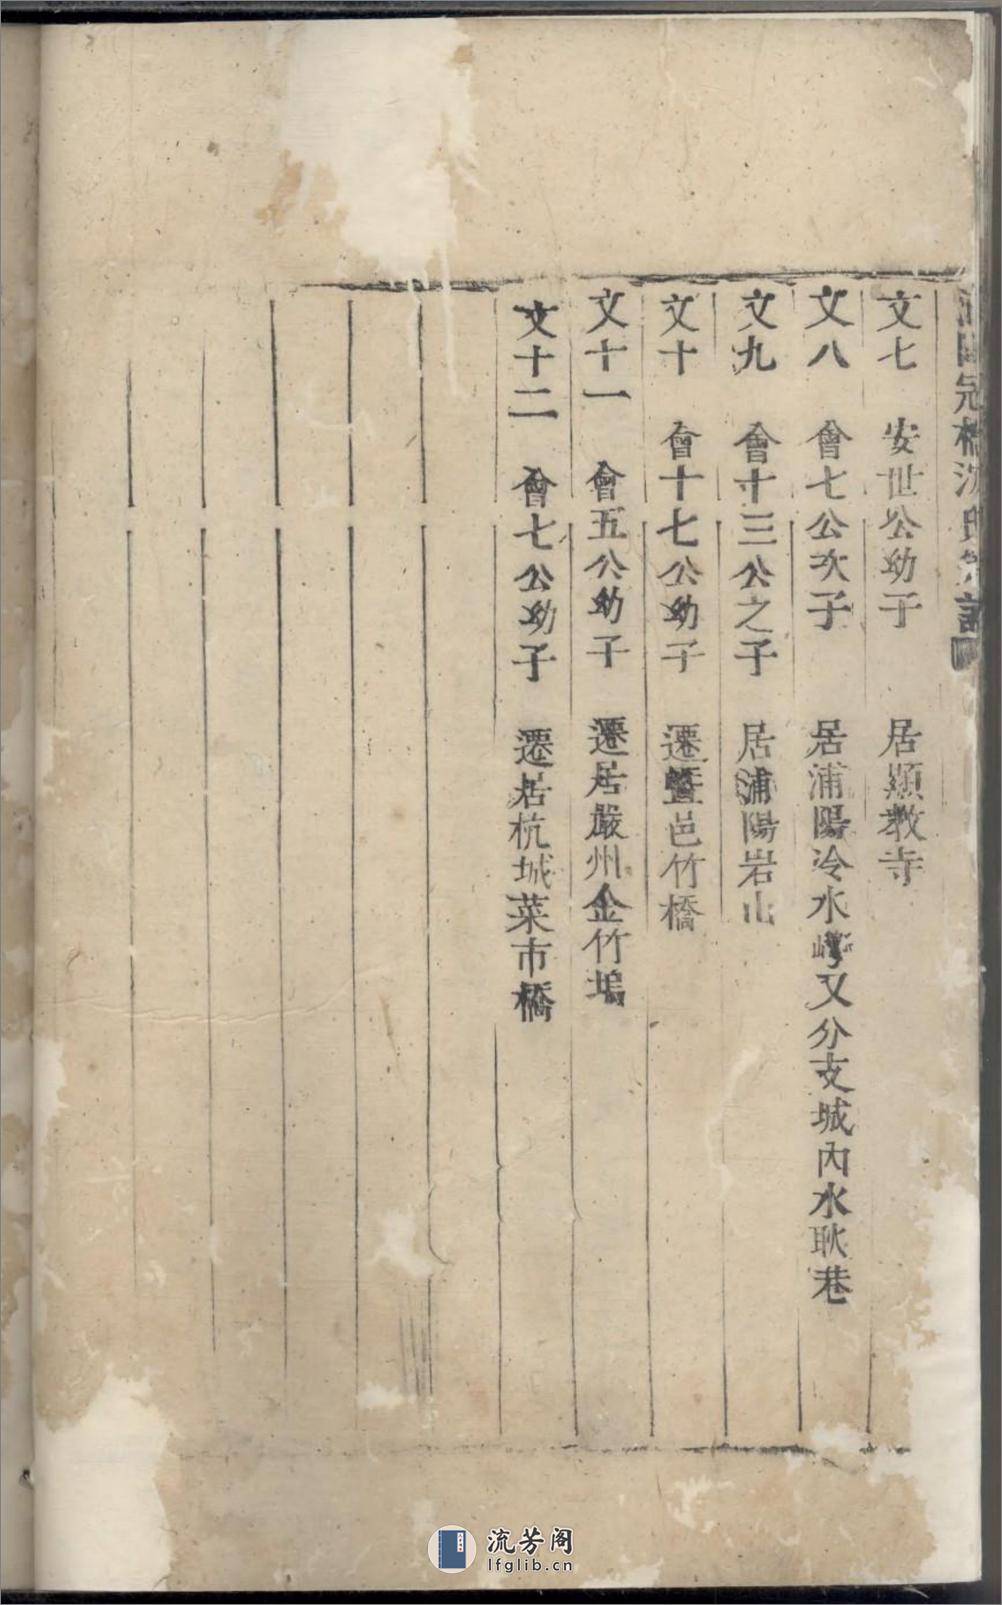 冠橋沈氏宗譜
文七 安世公幼子 居顯教寺
文八 會七公次子 居浦陽冷水 又分支城內水耿巷
文九 會十三公之子 居浦陽岩山
文十 會十七公幼子 遷暨邑竹橋
文十一 會五公幼子 遷居嚴州金竹塢
文十二 會七公幼子 遷居杭城菜市橋
流芳阁
lfglib.cn